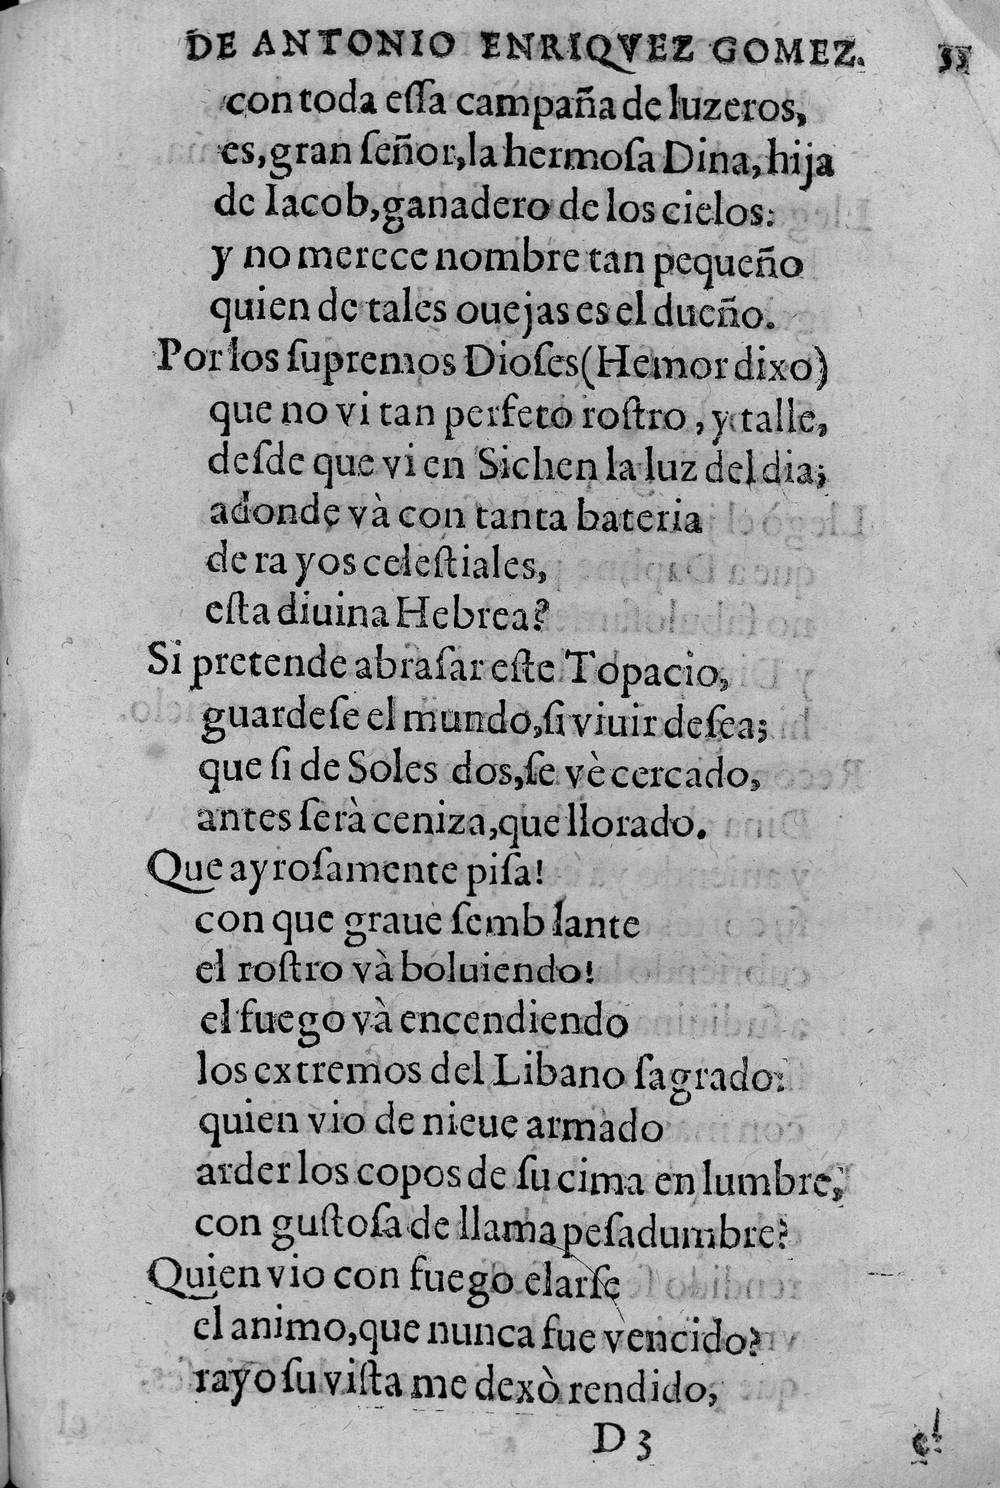 DE ANTONIO ENRIQVEZ GOMEZ.
con toda eſſa campaña de luzeros,
es, gran ſeñor, la hermoſa Dina, hija
de Iacob, ganadero de los cielos:
y no merece nombre tan pequeño
quien de tales ouejas es el dueño.
Por los ſupremos Dioſes (Hemor dixo)
que no vi tan perfeto roſtro, y talle,
deſde que vi en Sichen la luz del dia;
adonde và con tanta bateria
de rayos celeſtiales,
eſta diuina Hebrea?
Si pretende abraſar eſte Topacio,
guardeſe el mundo, ſi viuir deſea;
que ſi de Soles dos, ſe vè cercado,
antes ſerà ceniza, que llorado.
Que ayroſamente piſa!
con que graue ſemblante
el roſtro và boluiendo!
el fuego và encendiendo
los extremos del Libano ſagrado:
quien vio de nieue armado
arder los copos de ſu cima en lumbre,
con guſtoſa de llama peſadumbre?
Quien vio con fuego elarſe
el animo, que nunca fue vencido?
rayo ſu viſta me dexò rendido,
D 3